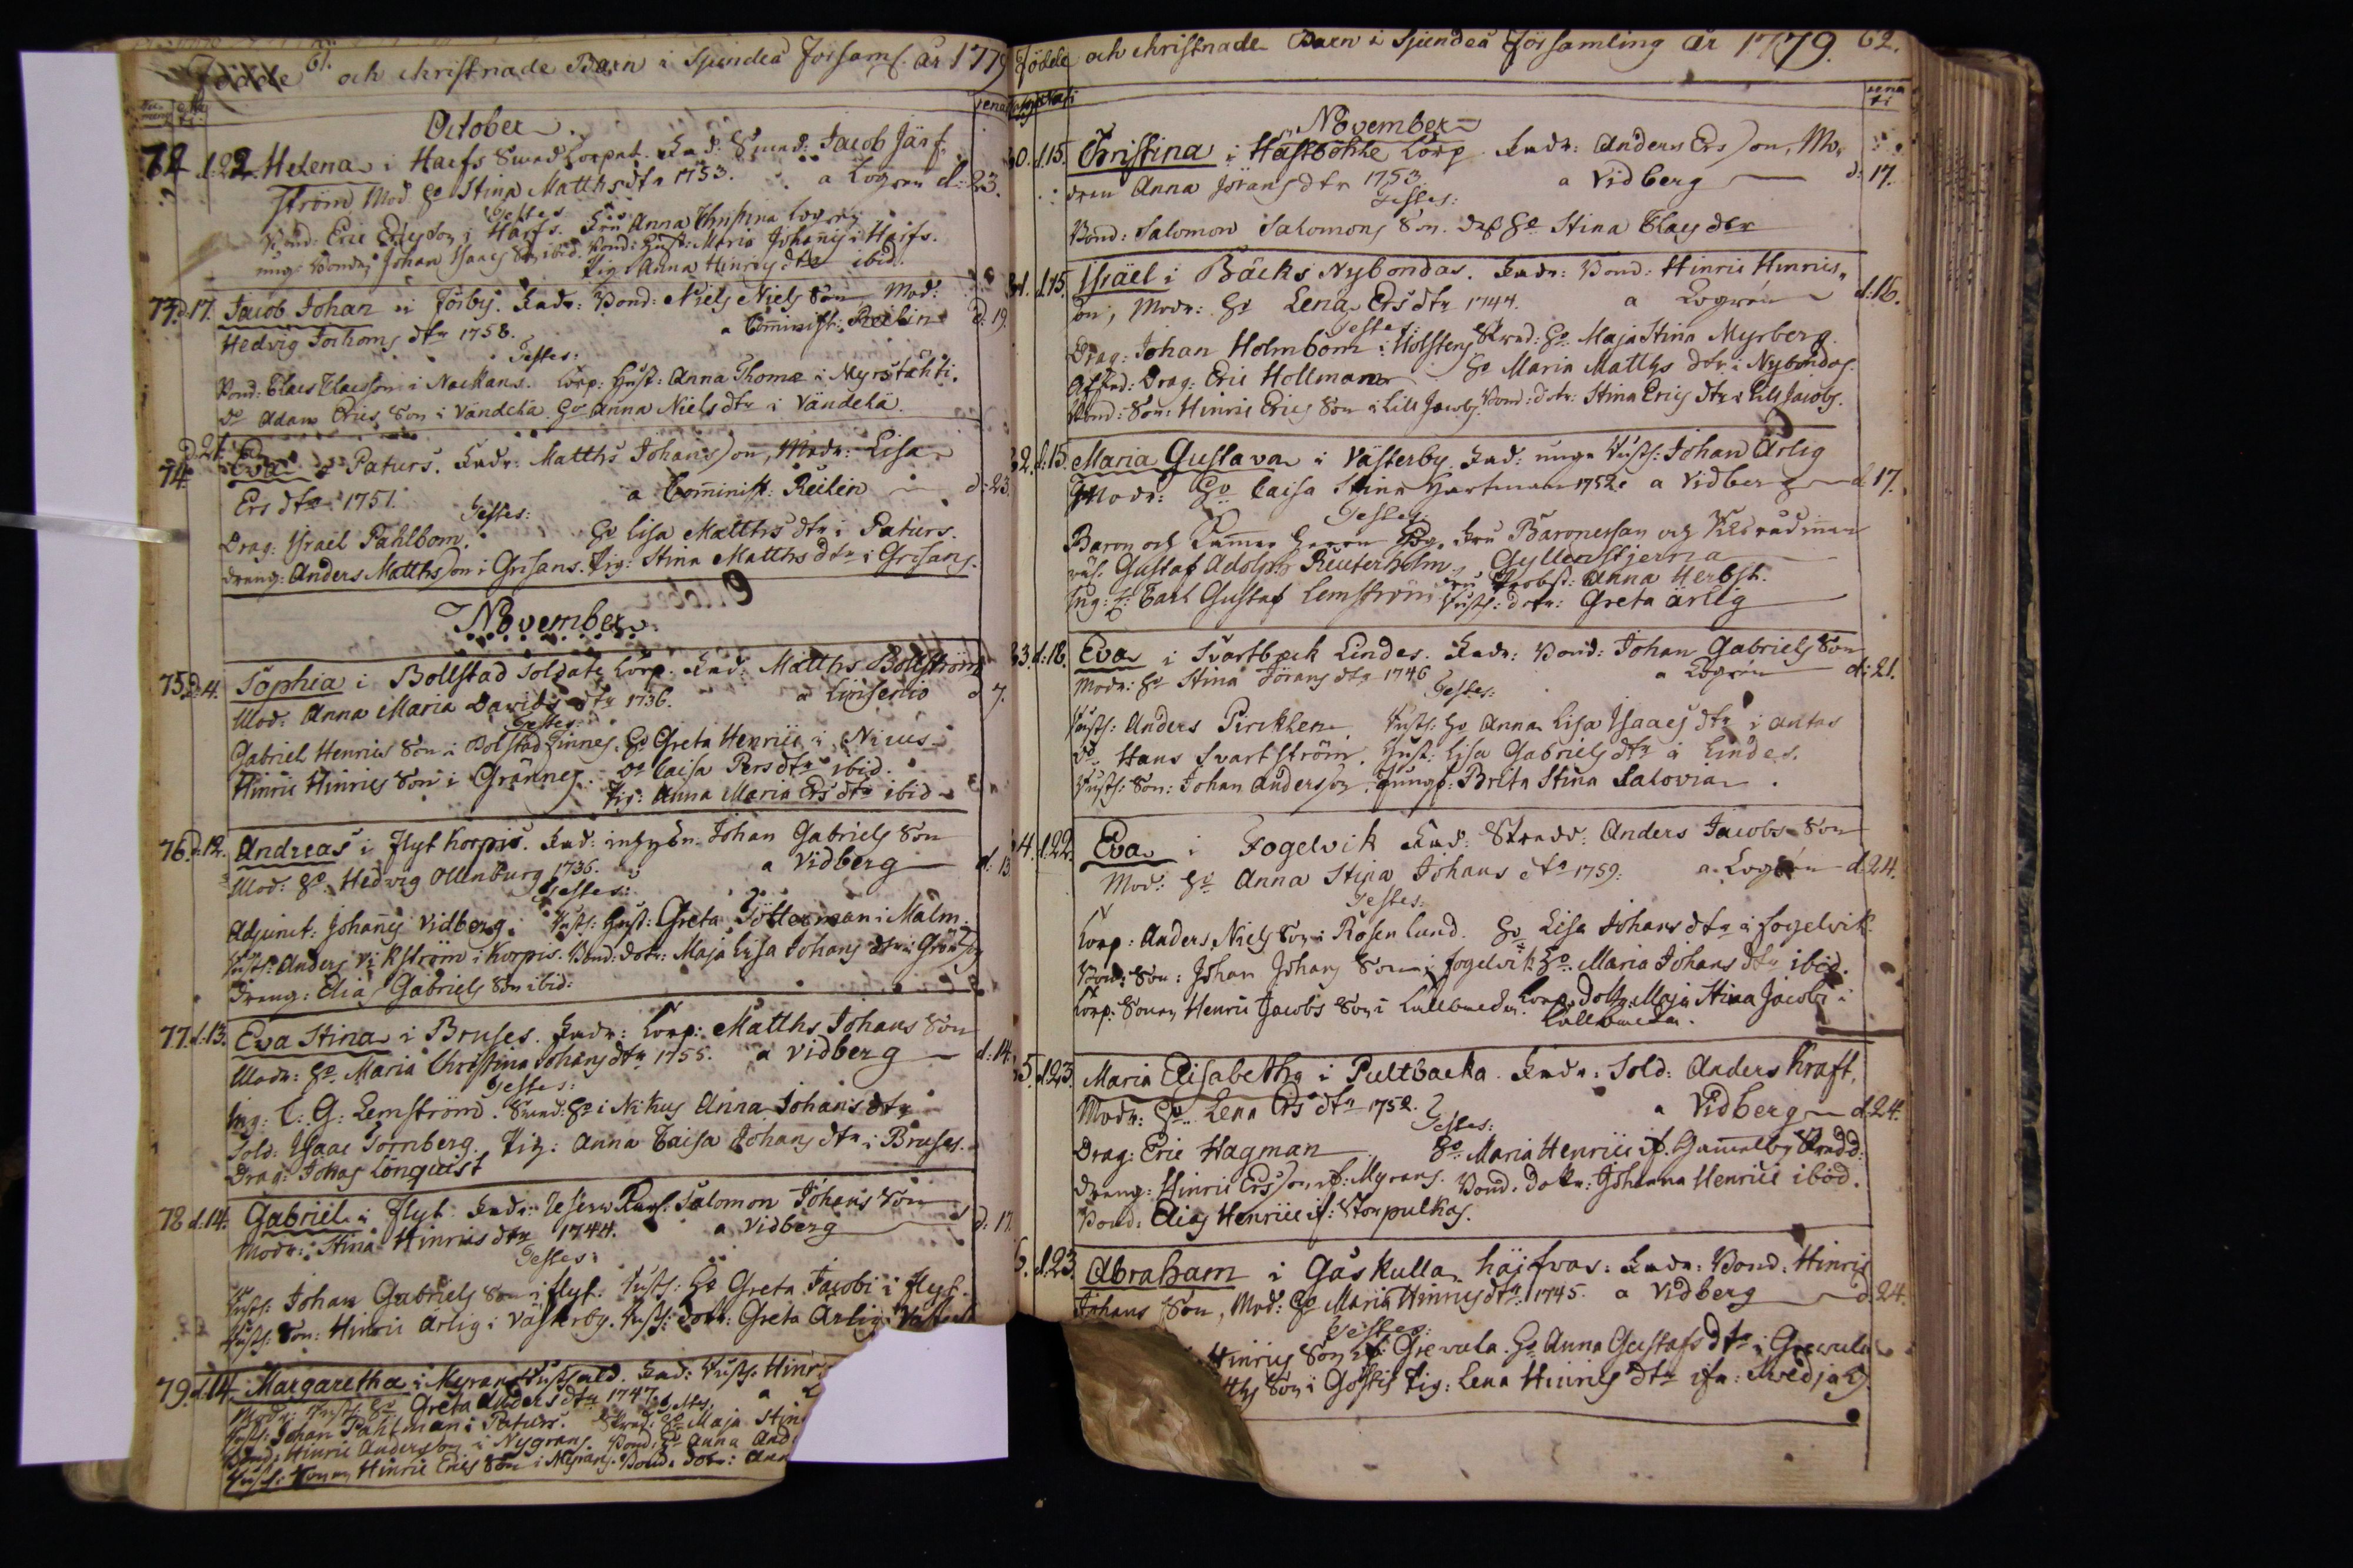 61.
Födde och christnade Barn i Sjundeå Församl. år 1779
October
72 d. 22. Helena i Harfs Smed Torpet. Fad: Smed: Jacob Järf
ström Mod. H:o Stina Matthsdtr 1753. a Logren d: 23.
Testes
Bond: Eric Ericsson i Harfs. Fru Anna Christina Logren
ung: Bonden Johan Isaacs Son ibid. Bond: Hust: Maria Johans i Harfs.
Pig: Anna Hinrics dtr ibid.
73. d. 17. Jacob Johan i Förby. Fadr: Bond: Niels Niels Son, Mod:
Hedvig Jochoms dtr 1758. a Comminist: Reilin d: 19.
Testes:
Bond: Claes Claesson i Nackans. Torp: Hust: Anna Thomæ i Myrstähti.
D:o Adam Erics Son i Vändelä. H:o Anna Niels dtr i Vändelä.
74 d. 21. Eva i Paturs. Fadr: Matths Johansson, Modr: Lisa
Ers dtr 1751. a Comminist: Reilin d: 23.
Testes:
Drag: Israel Pahlbom. H:o Lisa Matths dtr i Paturs.
Dreng: Anders Mattsson i Grisans. Pig: Stina Matths dtr i Grisans.
November
75. d. 4. Sophia i Bollstad Soldate Torp. Fad: Matths Bollström
Mod: Anna Maria Davids dtr 1736. d 7.
Testes:
Gabriel Henrics Son i Bolstad Finnes. H:o Greta Henrici i Nicus
Hinric Hinrics Son i Grännes. D:o Caisa Persdtr ibid.
Pig: Anna Maria Ers dtr ibid
76. d. 12. Andreas i Flyt Korpis. Fad: inhyses Johan Gabriels Son
Mod: H:o Hedvig Ollenburg 1736. a Vidberg d: 13
Testes:
Adjunct: Johannes Vidberg. Hust: Greta Götterman i Malm.
Anders Vikström i Korpis. Bond: dotr: Maja Lisa Johans dtr i
Dreng: Elias Gabriels Son ibid:
77. d. 13. Eva Stina i Bruses. Fadr: Torp: Matths Johans Son
Modr: H:o Maria Christina Johans dtr 1755. a Vidberg d: 14.
Testes:
Ing: C: G: Lemström. Smed: H:o i Nikus Anna Johans dtr
Sold: Isaac Törnberg. Pig: Anna Caisa Johans dtr i Bruses.
Drag: Jonas Lönquist
78 d. 14. Gabriel i Flyt. Fadr: Reserv Karl: Salomon Johans Son
Modr: Stina Hinrics dtr 1744. a Vidberg d: 17.
Testes:
Johan Gabriels Son i Flyt. H:o Greta Jacobi i Flyt.
Son: Hinric Ärlig i Västerby. dotr: Greta Ärlig i
79. d. 14. Margaretha i Myrans. Fad: Hinr
Modr: H:o Greta Anders dtr 1747. a
Testes.
Johan Pahlman i Paturs. H:o Maja Stin
Bond: Hinric Andersson i Nygrans. Bond: H:o Anna And
Hinric Erics Son i Myrans. Bond: dotr: Ann
Födde och christnade Barn i Sjundeå Församling år 1779. 62.
November
80. d. 15. Christina i Hästböhle Torp. Fadr: Anders Ersson, Mo-
dren Anna Jöransdtr 1753 a Vidberg d: 17.
Testes:
Bond: Salomon Salomons Son. H:o Stina Claes dtr
81. d. 15. Israel i Bäcks Nybondas. Fadr: Bond: Hinric Hinrics
on, Modr: H:o Lena Ers dtr 1744. a Logren d: 16.
Testes:
Drag: Johan Holmbom i Holstens H:o Maja Stina Myrberg.
Afsked: Drag: Eric Hollman H:o Maria Matths dtr i Nybondas.
Bond: Son: Hinric Erics Son i Lill Jacobs. Bond: dotr: Stina Erics dtr i Lill Jacobs.
82. d: 15. Maria Gustava i Västerby. Fad: unge Johan Ärlig
Modr: H:o Caisa Stina Hartman 1752. a Vidberg d. 17.
Testes:
Baron och Kammar Herrn Fru Baronessan och
Gustaf Adolph Reuterholm. Gyllenstjerna
Ing: C: Carl Gustaf Lemström Fru Probst: Anna Herbst.
dotr: Greta Ärlig
83. d: 18. Eva i Svartbeck Lindes. Fadr: Bond: Johan Gabriels Son
Modr: H:o Stina Jörans dtr 1746 a Logren d: 21.
Testes:
Anders Pircklen. H:o Anna Lisa Isaacs dtr i Antas
D:o Hans Svartström. Hust: Lisa Gabriels dtr i Lindes.
Son: Johan Andersson. Jungf: Brita Stina Salovia.
84. d. 22. Eva i Fogelvik Fad: Anders Jacobs Son
Mod: H:o Anna Stina Johans dtr 1759: a Logren d. 24.
Testes:
Torp: Anders Niels Son i Rosenlund. H:o Lisa Johansdtr i Fogelvik.
Bond: Son: Johan Johans Son i Fogelvik H:o Maria Johans dtr ibid.
Torp: Sonen Henric Jacobs Son i Torp: Dottr: Maja Stina Jacobs i
85. d. 23. Maria Elisabetha i Pultbacka. Fadr: Sold: Anders Kraft,
Modr: H:o Lena Ers dtr 1752. a Vidberg d. 24.
Testes:
Drag: Eric Hagman H:o Maria Henrici if. Gammelby
Dreng: Hinric Ersson if: Myrans. Bond. dotr: Johanna Henrici ibid.
Bond: Elias Henrici if: Storpulkas.
86. d. 23. Abraham i Gåskulla häifvas. Fadr: Bond: Hinric
Johans Son, Mod: H:o Maria Hinrics dtr. 1745. a Vidberg d. 24.
Testes:
Hinrics Son if: Grevula. H:o Anna Gustafs dtr i Grevula
Matths Son i Gölstis Pig: Lena Hinrics dtr ifr: Svedja